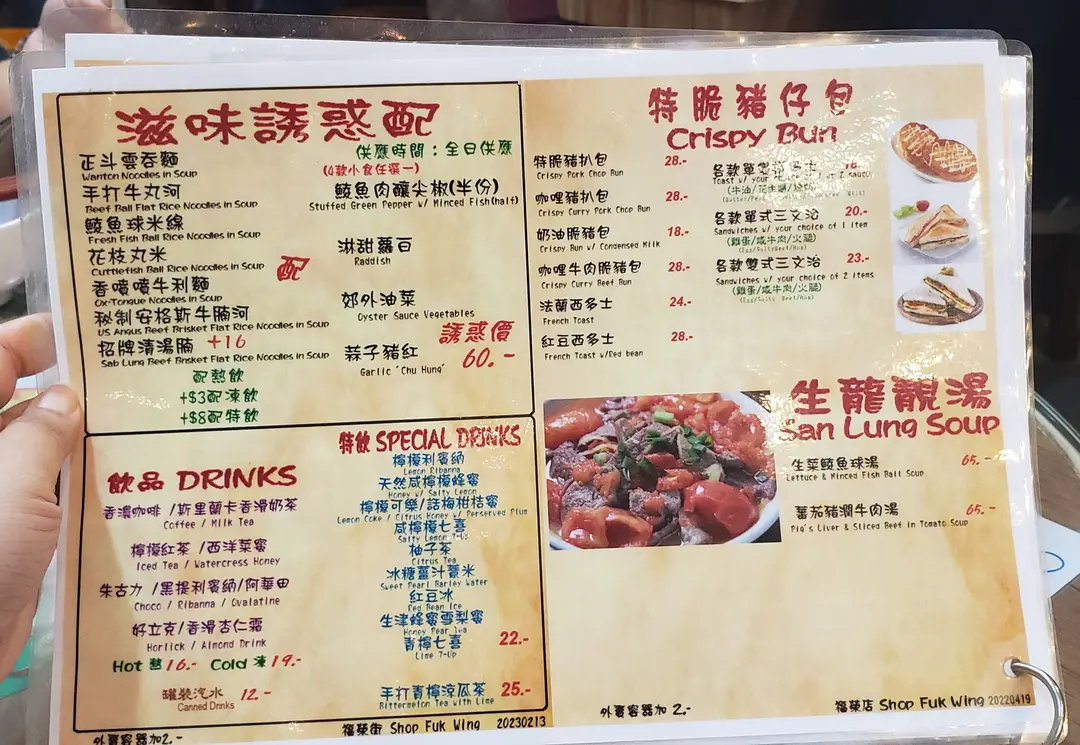 滋味誘惑配
供應時間：全日供應
正斗雲吞麵
Wanton Noodles in Soup
手打牛丸河
Beef Ball Flat Rice Noodles in Soup
鯪魚球米線
Fresh Fish Ball Rice Noodles in Soup
花枝丸米
Cuttlefish Ball Rice Noodles in Soup
香噴噴牛利麵
Ox-Tongue Noodles in Soup
秘制安格斯牛腩河
US Angus Beef Brisket Flat Rice Noodles in Soup
招牌清湯腩 +16
Sab Lung Beef Brisket Flat Rice Noodles in Soup
配
(4款小食任選一)
鯪魚肉釀尖椒(半份)
Stuffed Green Pepper w/ Minced Fish(half)
淋甜蘿白
Raddish
郊外油菜
Oyster Sauce Vegetables
蒜子豬紅
Garlic 'Chu Hung'
誘惑價
60.-
配熱飲
+$3配凍飲
+$8配特飲
飲品 DRINKS
香濃咖啡 /斯里蘭卡香滑奶茶
Coffee / Milk Tea
檸檬紅茶 /西洋菜蜜
Iced Tea / Watercress Honey
朱古力 /黑提利賓納/阿華田
Choco / Ribanna / Ovalatine
好立克/香滑杏仁霜
Horlick / Almond Drink
Hot 熱 16.- Cold 凍 19.-
罐裝汽水 12.-
Canned Drinks
特飲 SPECIAL DRINKS
檸檬利賓納
Lemon Ribanna
天然咸檸檬蜂蜜
Honey w/ Salty Lemon
檸檬可樂/話梅柑桔蜜
Lemon Coke / Citrus Honey w/ Perserved Plum
咸檸檬七喜
Salty Lemon 7-Up
柚子茶
Citrus Tea
冰糖薑汁薏米
Sweet Pearl Barley Water
紅豆冰
Red Bean Ice
生津蜂蜜雪梨蜜
Honey Pear Tea
青檸七喜 22.-
Lime 7-Up
手打青檸涼瓜茶 25.-
Bittermelon Tea with Lime
外賣容器加2.-
福榮街 Shop Fuk Wing 20230213
特脆豬仔包
Crispy Bun
特脆豬扒包 28.-
Crispy Pork Chop Bun
咖哩豬扒包 28.-
Crispy Curry Pork Chop Bun
奶油脆豬包 18.-
Crispy Bun w/ Condensed Milk
咖哩牛肉脆豬包 28.-
Crispy Curry Beef Bun
法蘭西多士 24.-
French Toast
紅豆西多士 28.-
French Toast w/Red bean
各款單式三文治 20.-
Sandwiches w/ your choice of 1 item
(雞蛋/咸牛肉/火腿)
(Egg/Salty Beef/Ham)
各款雙式三文治 23.-
Sandwiches w/ your choice of 2 items
(雞蛋/咸牛肉/火腿)
(Egg/Salty Beef/Ham)
生龍靚湯
San Lung Soup
生菜鯪魚球湯 65.-
Lettuce & Minced Fish Ball Soup
蕃茄豬潤牛肉湯 65.-
Pig's Liver & Sliced Beef in Tomato Soup
外賣容器加 2.-
福榮店 Shop Fuk Wing 20220419